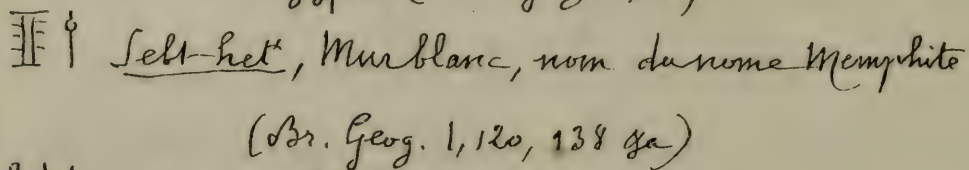 Sebt-het*, Mur blanc, nom du nome Memphite
(Br. Geog. 1, 120, 138 ga)